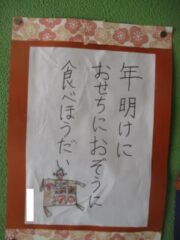 年明けに
おせちにおぞうに
食べほうだい